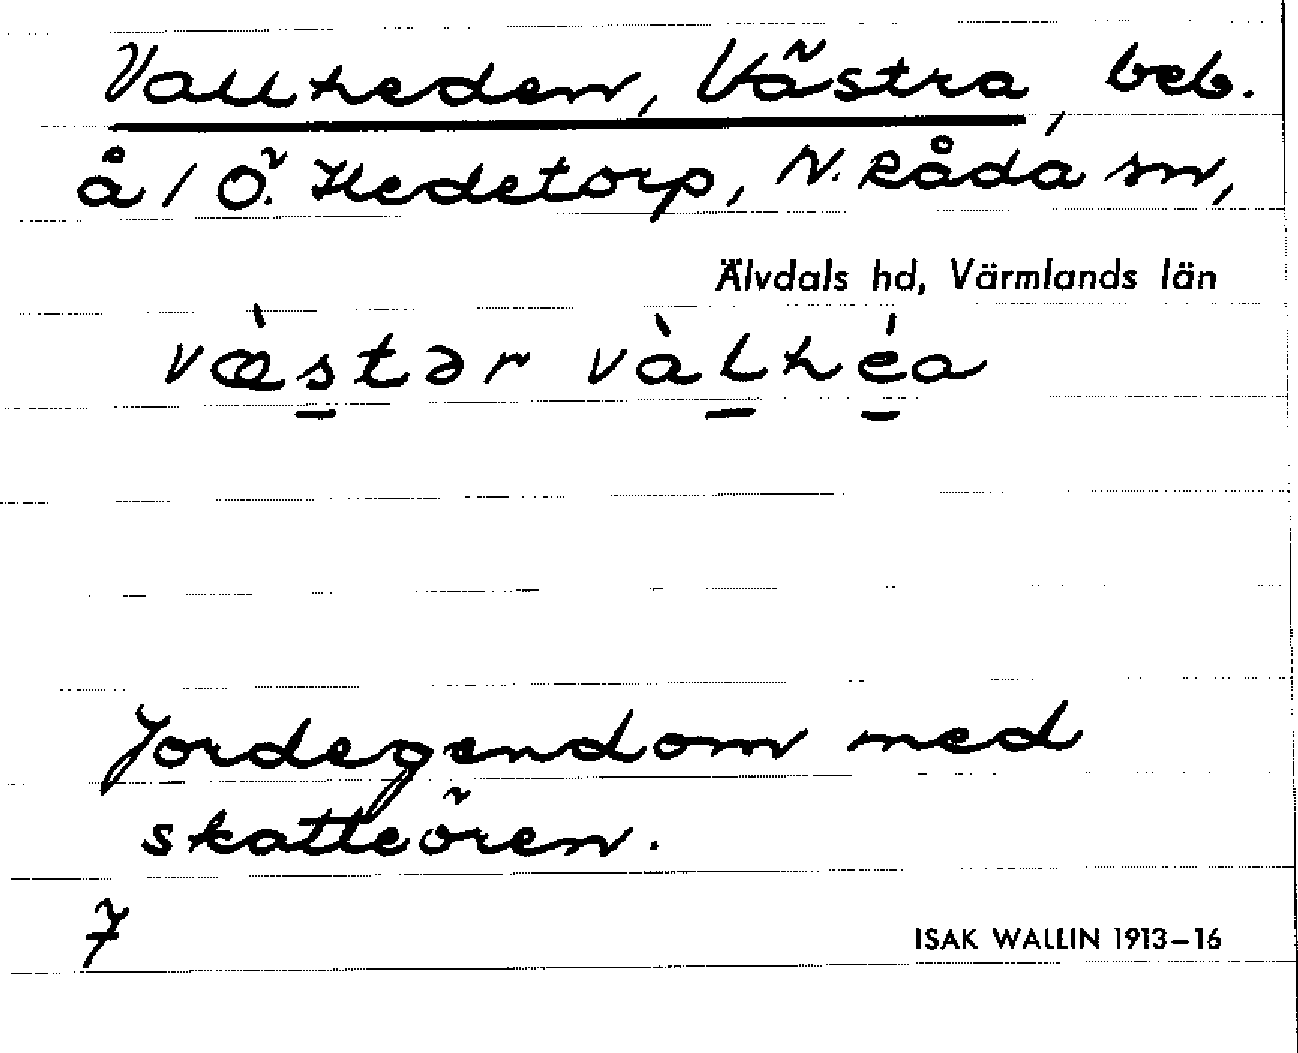 Vallheden, Västra, beb.
å / Ö. Hedetorp, N. Råda sn,
Älvdals hd, Värmlands län
væ̀s̲tər vàl̲hé̲a
Jordegendom med
skatteören.
7
ISAK WALLIN 1913–16